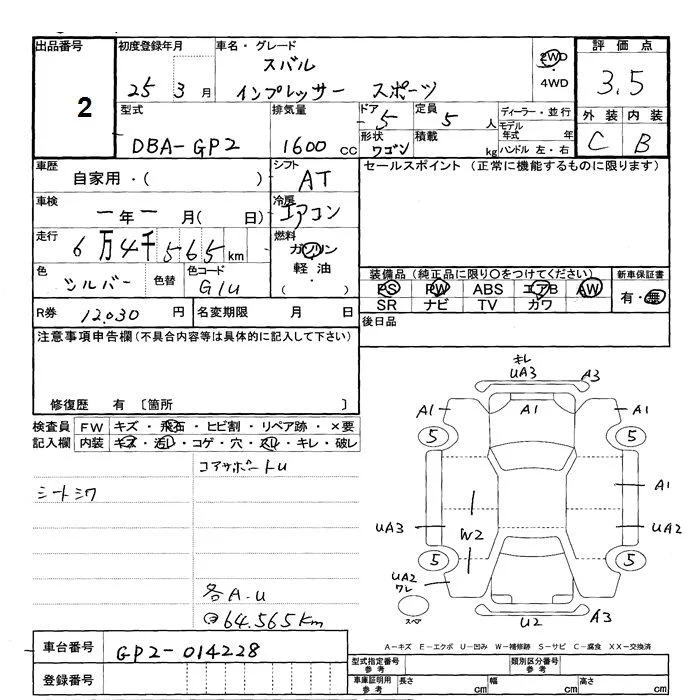 出品番号 初度登録年月 車名・グレード 評価点
2 25 3月 スバル 2WD 3.5
インプレッサー スポーツ 4WD
外装 内装
型式 排気量 ドア 5 定員 5人 ディーラー・並行 C B
モデル年式 年
DBA-GP2 1600 cc 形状 ワゴン 積載 kg ハンドル 左・右
車歴 自家用・( ) シフト AT セールスポイント (正常に機能するものに限ります)
車検 一年一月( 日) 冷房 エアコン
走行 6万4千565km 燃料 ガソリン
軽油
・
( )
色 シルバー 色替 色コード G1U
装備品 (純正品に限り○をつけてください) 新車保証書
PS PW ABS エアB AW 有・無
SR ナビ TV カワ
R券 12,030円 名変期限 月 日 後日品
注意事項申告欄(不具合内容等は具体的に記入して下さい)
修復歴 有 〔箇所 〕
検査員 FW キズ・飛石・ヒビ割・リペア跡・×要
記入欄 内装 キズ・汚れ・コゲ・穴・スレ・キレ・破レ
コアサポートU
シートシワ
各A.U
64.565Km
キレ
UA3 A3
A1 A1 A1
5 5
A1
UA3 W2 UA2
5 5
UA2
ワレ
スペア U2 A3
A-キズ E-エクボ U-凹み W-補修跡 S-サビ C-腐食 XX-交換済
車台番号 GP2-014228
登録番号
型式指定番号 参考 類別区分番号 参考
車庫証明用 参考 長さ cm 幅 cm 高さ cm